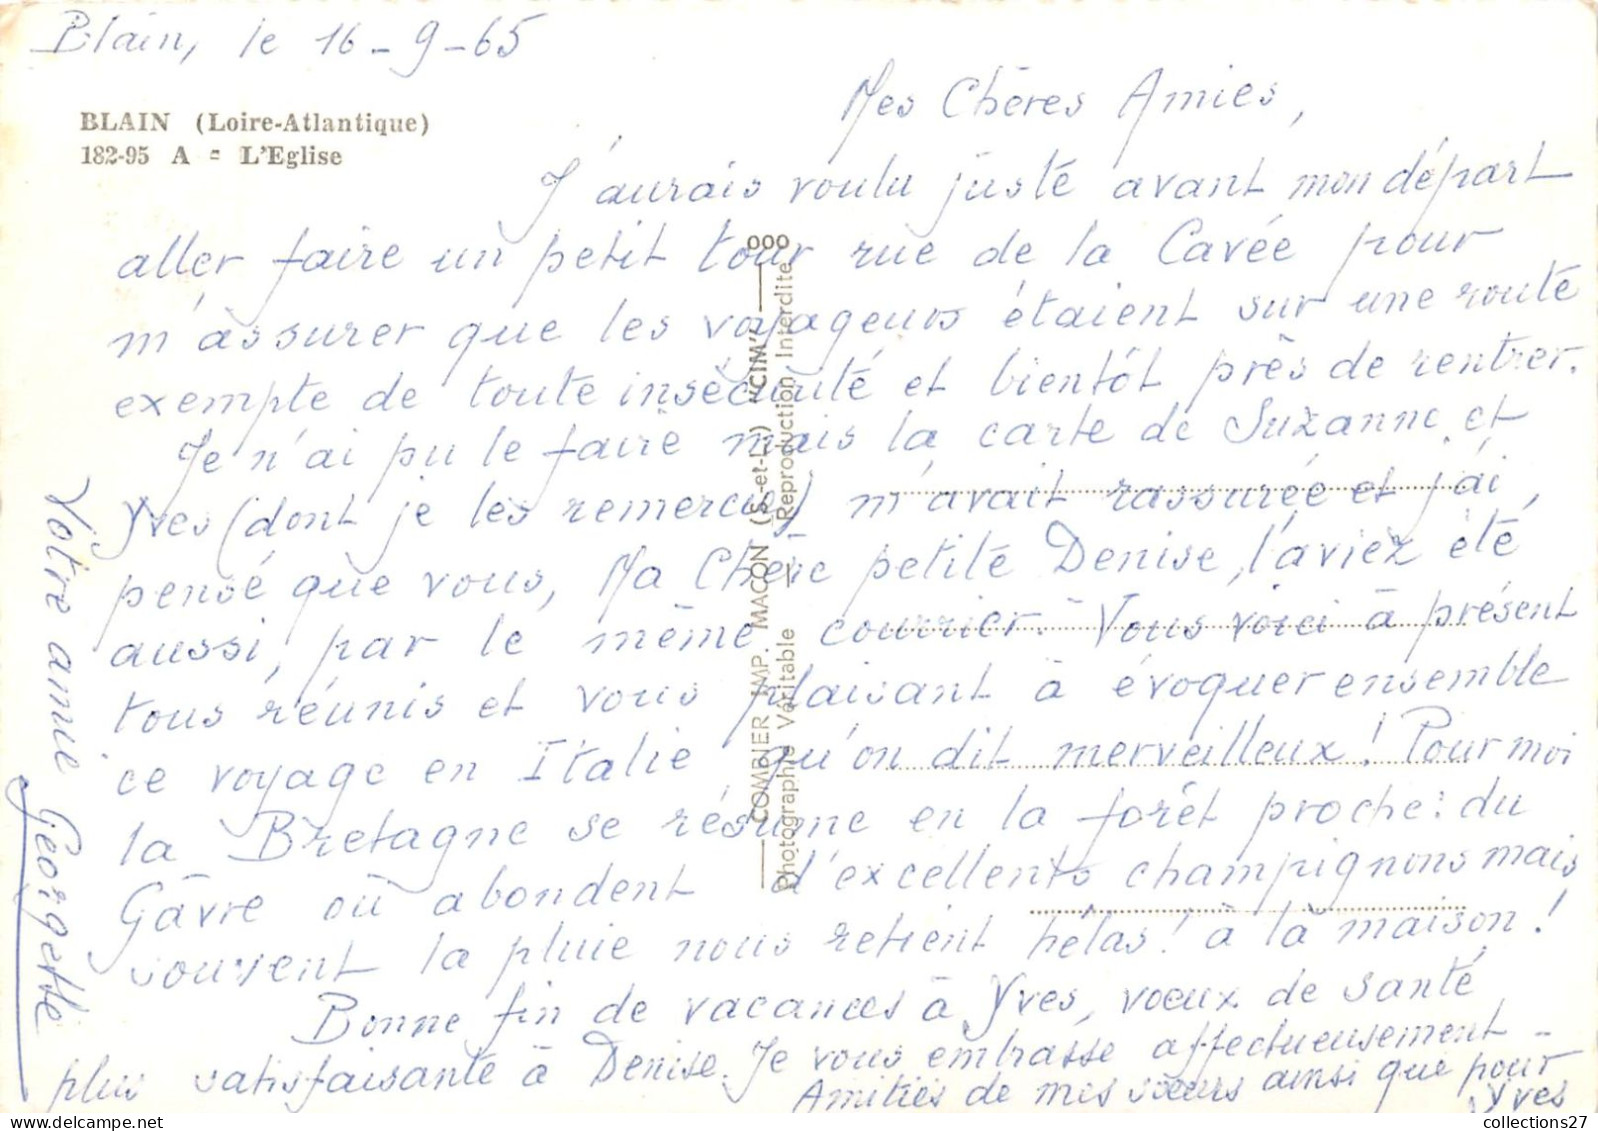 Blain, le 16-9-65
BLAIN (Loire-Atlantique)
182-95 A - L'Eglise
Mes Chères Amies,
J'aurais voulu juste avant mon départ
aller faire un petit tour rue de la Cavée pour
m'assurer que les voyageurs étaient sur une route
exempte de toute insécurité et bientôt près de rentrer.
Je n'ai pu le faire mais la carte de Suzanne et
Yves (dont je les remercie) m'avait rassurée et j'ai
pensé que vous, Ma Chère petite Denise, l'aviez été
aussi, par le même courrier. Vous voici à présent
tous réunis et vous plaisant à évoquer ensemble
ce voyage en Italie qu'on dit merveilleux! Pour moi
la Bretagne se résume en la forêt proche: du
Gâvre où abondent d'excellents champignons mais
souvent la pluie nous retient hélas! à la maison!
Bonne fin de vacances à Yves, voeux de santé
plus satisfaisante à Denise. Je vous embrasse affectueusement -
Amitiés de mes soeurs ainsi que pour
Yves
Votre amie Georgette
COMBIER IMP. MACON (S.-et-L.) "CIM"
Photographie Véritable — Reproduction Interdite
collections27